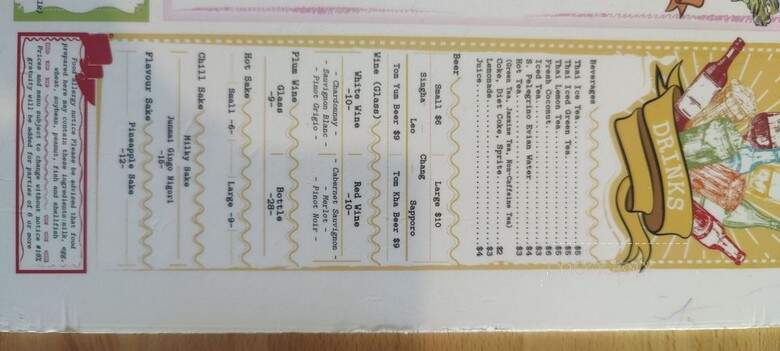 DRINKS
Beverages
Thai Ice Tea $5
Thai Iced Green Tea $5
Thai Lemon Tea $5
Fresh Coconut $6
Iced Tea $3
S. Pelegrino Evian Water $4
Hot Tea $3
(Green Tea, Jasmine Tea, Non-Caffeine Tea)
Coke, Diet Coke, Sprite $2
Lemonade $3
Juice $4
Beer
Small $6 Large $10
Singha Leo Chang Sapporo
Tom Yum Beer $9 Tom Kha Beer $9
Wine (Glass)
White Wine Red Wine
-10- -10-
- Chardonnay - - Cabernet Sauvignon -
- Sauvignon Blanc - - Merlot -
- Pinot Grigio - - Pinot Noir -
Plum Wine
Glass Bottle
-9- -28-
Hot Sake
Small -6- Large -9-
Chill Sake
Milky Sake
Junmai Gingo Nigori
-15-
Flavour Sake
Pineapple Sake
-12-
Food allergy notice Please be advised that food
prepared here may contain these ingredients:milk, egg,
wheat, soybean, peanut, fish and shellfish
Prices and menu subject to change without notice #18%
gratuity will be added for parties of 6 or more